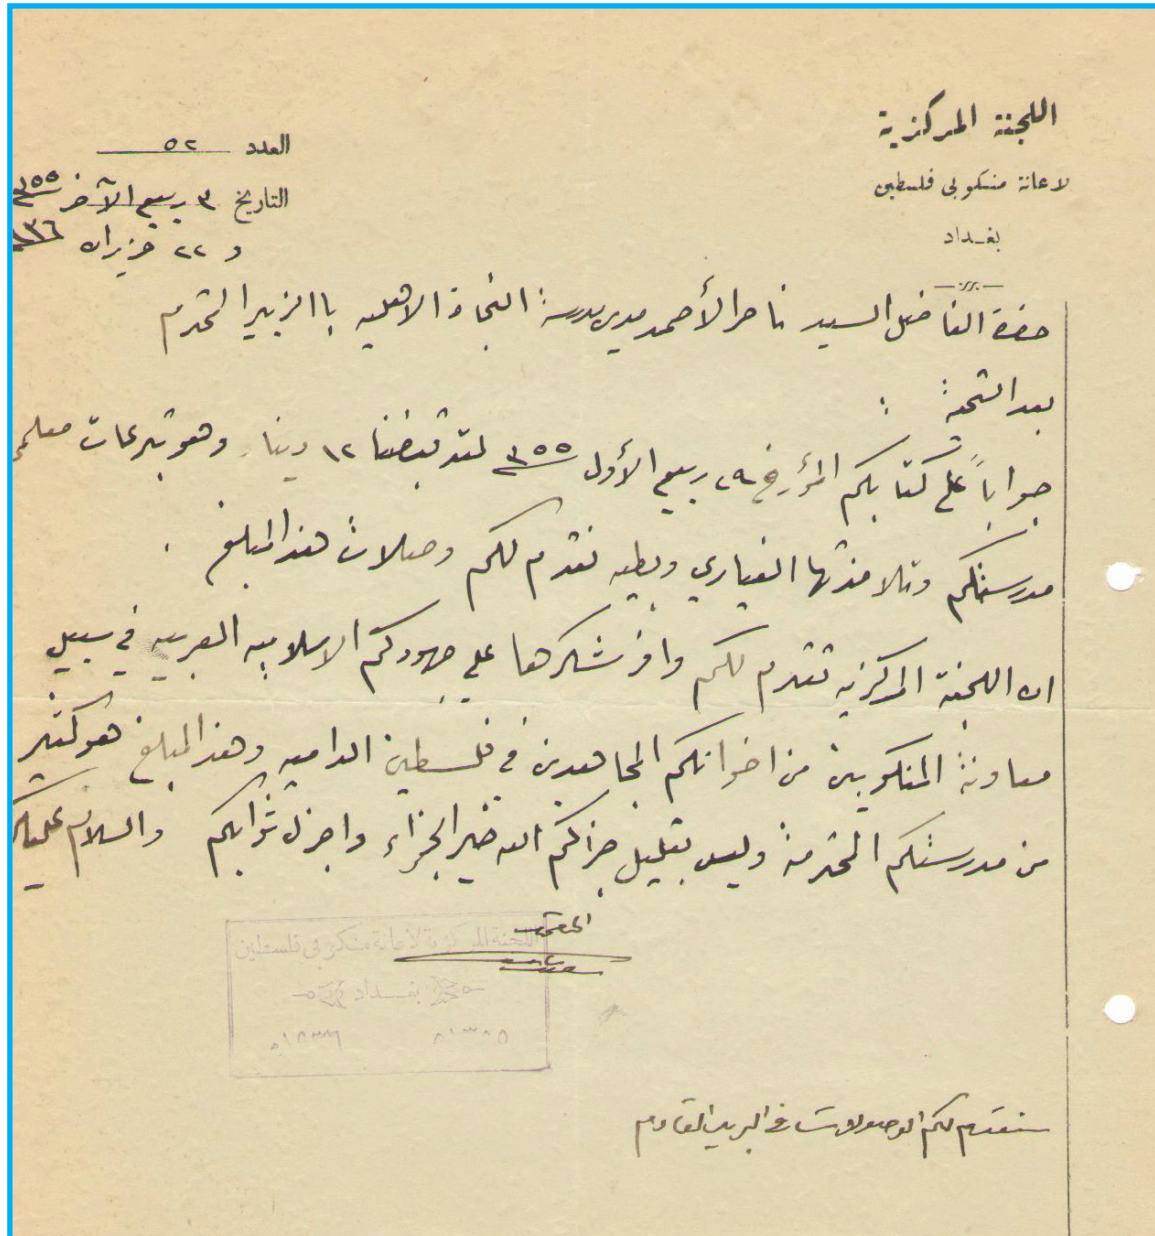 اللجنة المركزية
لاعانة منكوبى فلسطين
بغداد
العدد ٥٢
التاريخ ٣ ربيع الآخر ٣٥٥
و ٢٢ حزيران ٩٣٦
حضرة الفاضل السيد ناصر الأحمد مدير مدرسة النجاة الاهليه باالزبير المحترم
بعد التحية :
جواباً على كتابكم المؤرخ ٢٩ ربيع الأول ٣٥٥ لقد قبضنا ١٢ دينار وهو تبرعات معلمي
مدرستكم وتلامذتها الغيارى وبطيه نقدم لكم وصلات هذا المبلغ .
ان اللجنة المركزيه تقدم لكم وافر شكرها على جهودكم الاسلاميه العربيه في سبيل
معاونة المنكوبين من اخوانكم المجاهدين في فلسطين الداميه وهذا المبلغ هو كثير
من مدرستكم المحترمة وليس بقليل جزاكم الله خير الجزاء واجزل ثوابكم والسلام عليكم
اللجنة المركزية لاعانة منكوبى فلسطين
بغداد
سنقدم لكم الوصولات في البريد القادم